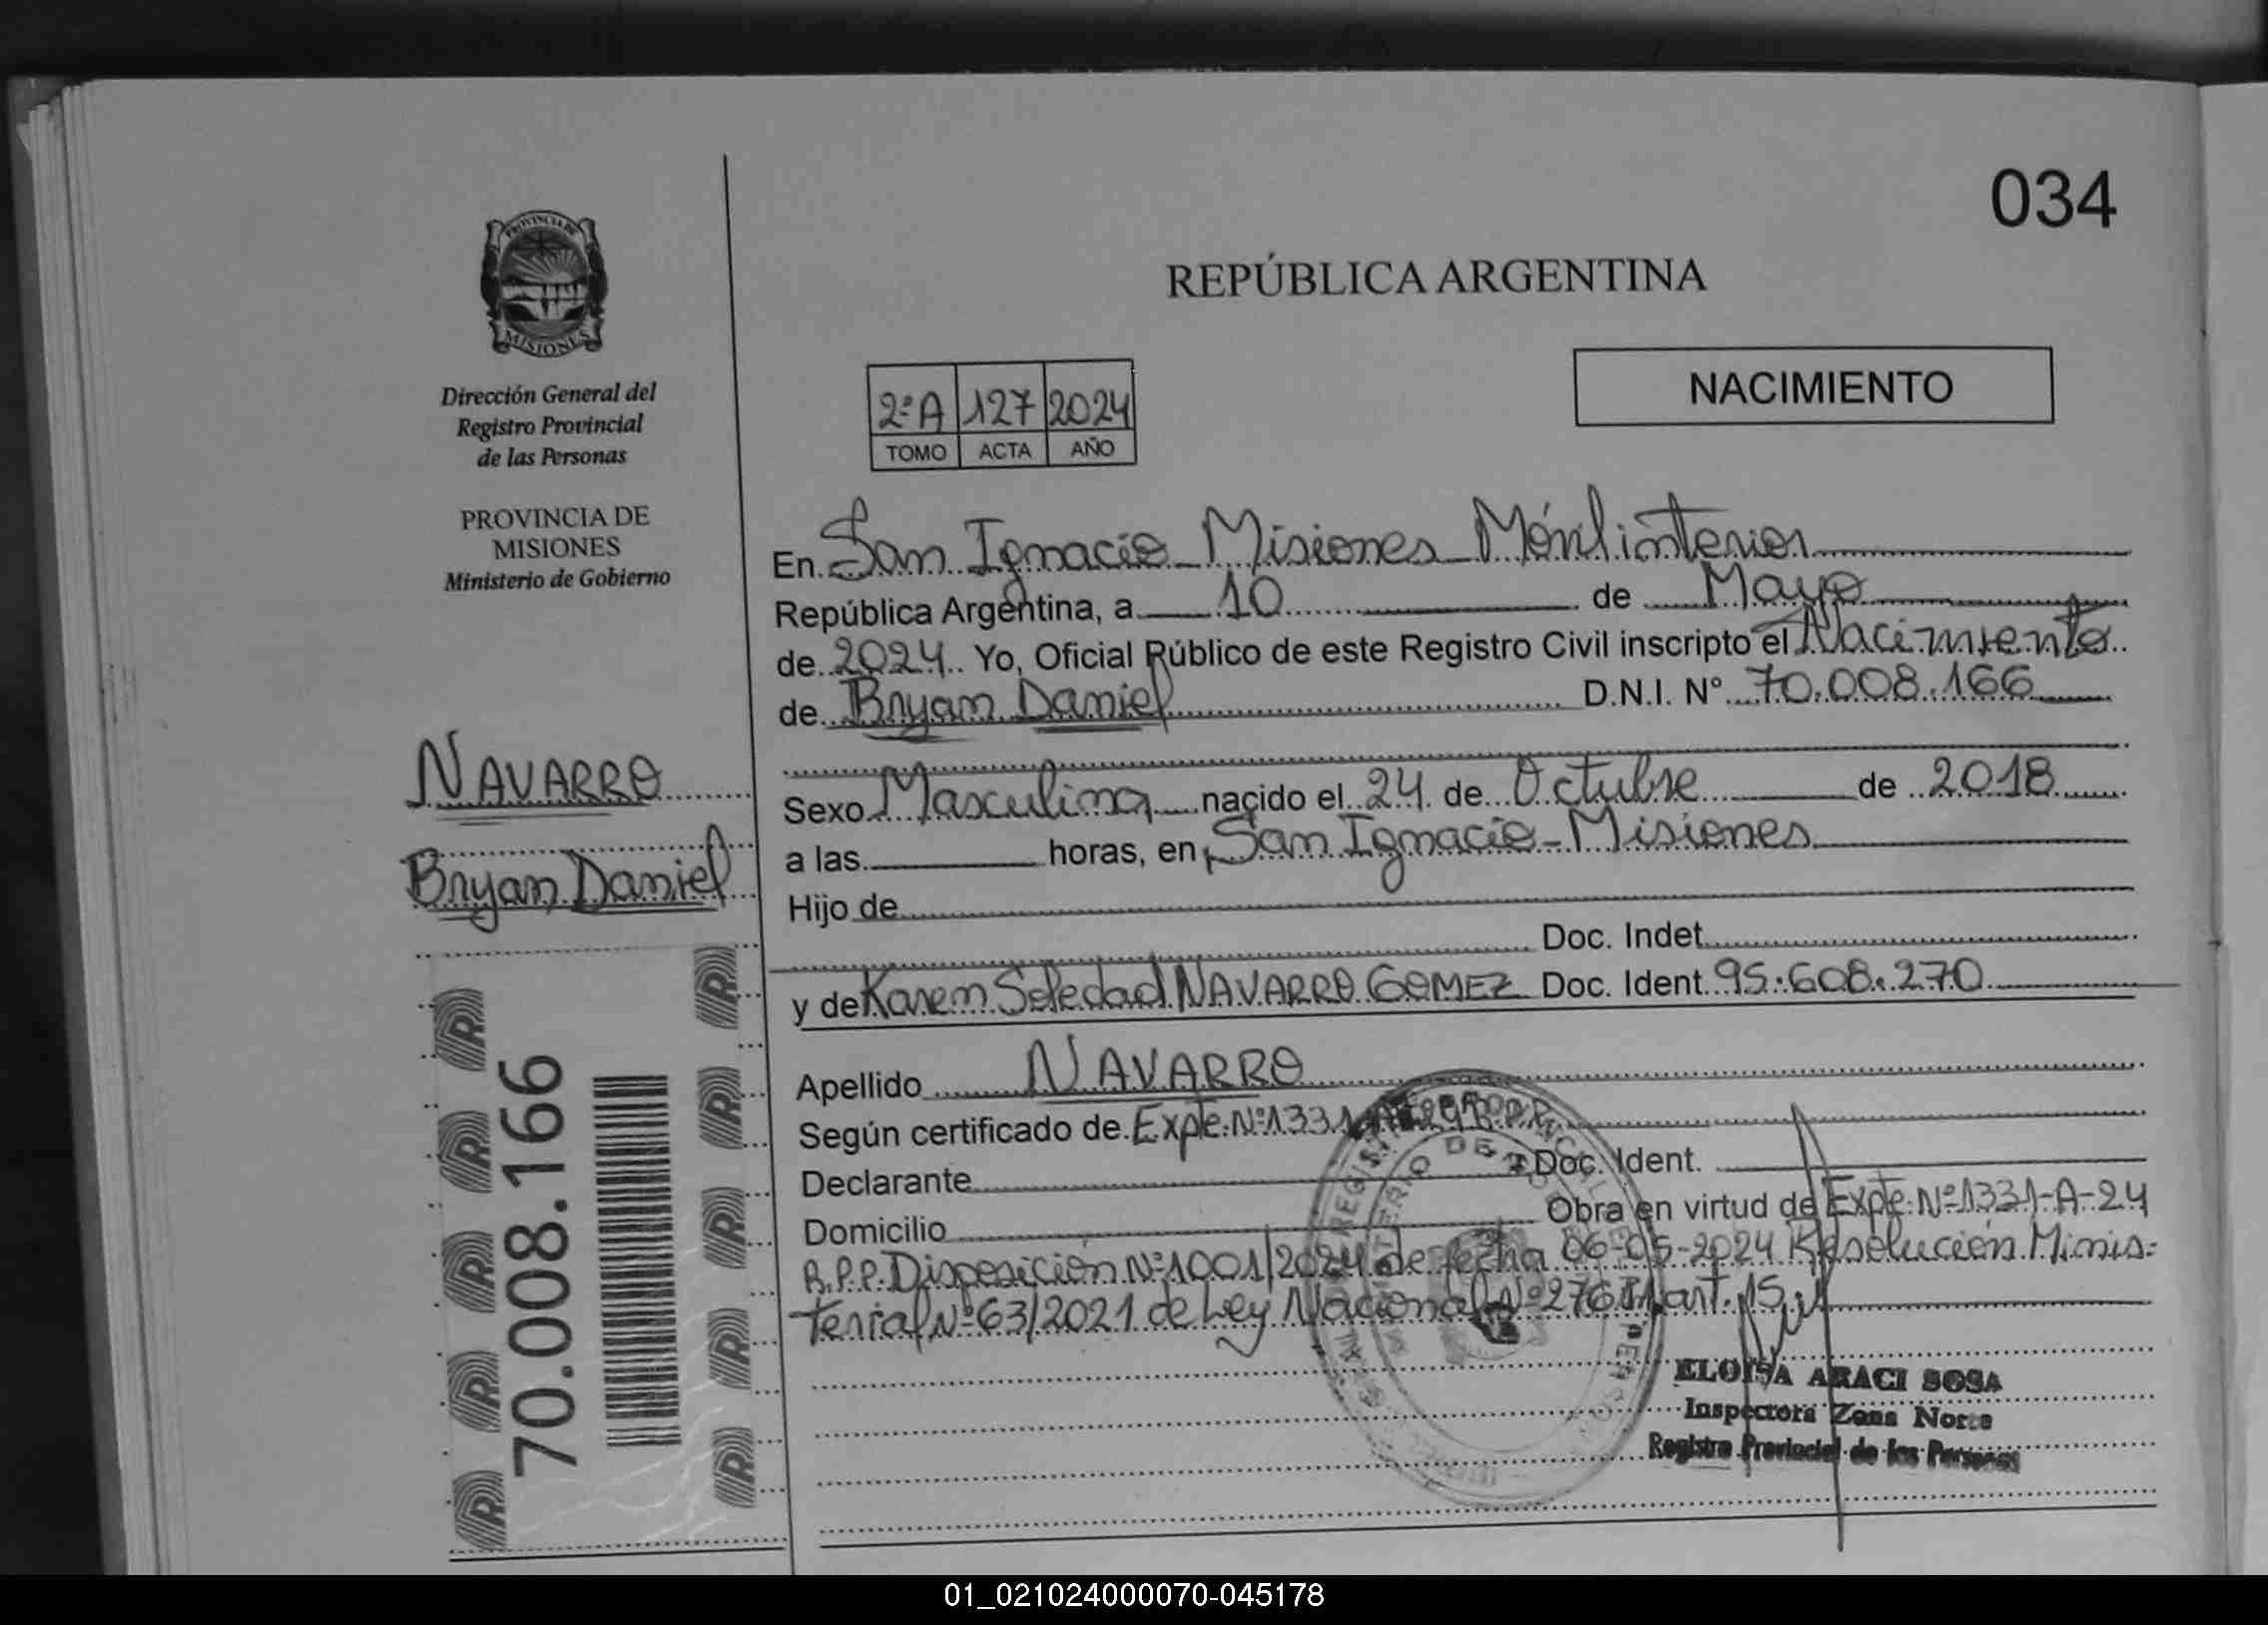 034
PROVINCIA DE
MISIONES
Dirección General del
Registro Provincial
de las Personas
PROVINCIA DE
MISIONES
Ministerio de Gobierno
NAVARRO
Bryan Daniel
70.008.166
REPÚBLICA ARGENTINA
NACIMIENTO
2ºA 127 2024
TOMO ACTA AÑO
En San Ignacio Misiones Móvil interior
República Argentina, a 10 de Mayo
de 2024 Yo, Oficial Público de este Registro Civil inscripto el Nacimiento
de Bryan Daniel D.N.I. Nº 70.008.166
Sexo Masculino nacido el 24 de Octubre de 2018
a las horas, en San Ignacio - Misiones
Hijo de
Doc. Indet
y de Karen Soledad NAVARRO GOMEZ Doc. Ident 95.608.270
Apellido NAVARRO
Según certificado de Expte. Nº1331 R.P.P.
Declarante Doc. Ident.
Domicilio Obra en virtud de Expte. Nº1331-A-24
R.P.P. Disposición Nº1001/2024 de fecha 06-05-2024 Resolución Minis-
terial Nº63/2021 de Ley Nacional art. 15
ELOISA ARACI SOSA
Inspectora Zona Norte
Registro Provincial de las Personas
01_021024000070-045178